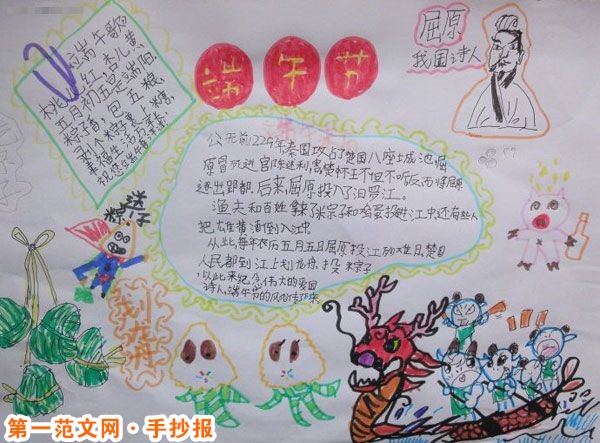 端午节
屈原
我国诗人
端午歌
桃儿红杏儿黄
五月初五是端阳
粽子香,包五粮
剥个粽子裹上糖
幸福生活
祝您端午
公元前229年秦国攻占了楚国八座城池屈
原冒死进宫陈述利害楚怀王不但不听反而将屈
逐出郢都后来屈原投入了汨罗江。
渔夫和百姓拿
投进江中还有些人
把雄黄酒倒入江中
从此,每年农历五月五日屈原投江
楚国
人民都到江上划龙舟,投粽子
以此来纪念伟大的爱国
诗人,端午节的风俗
下来
送
粽子
划龙舟
第一范文网·手抄报